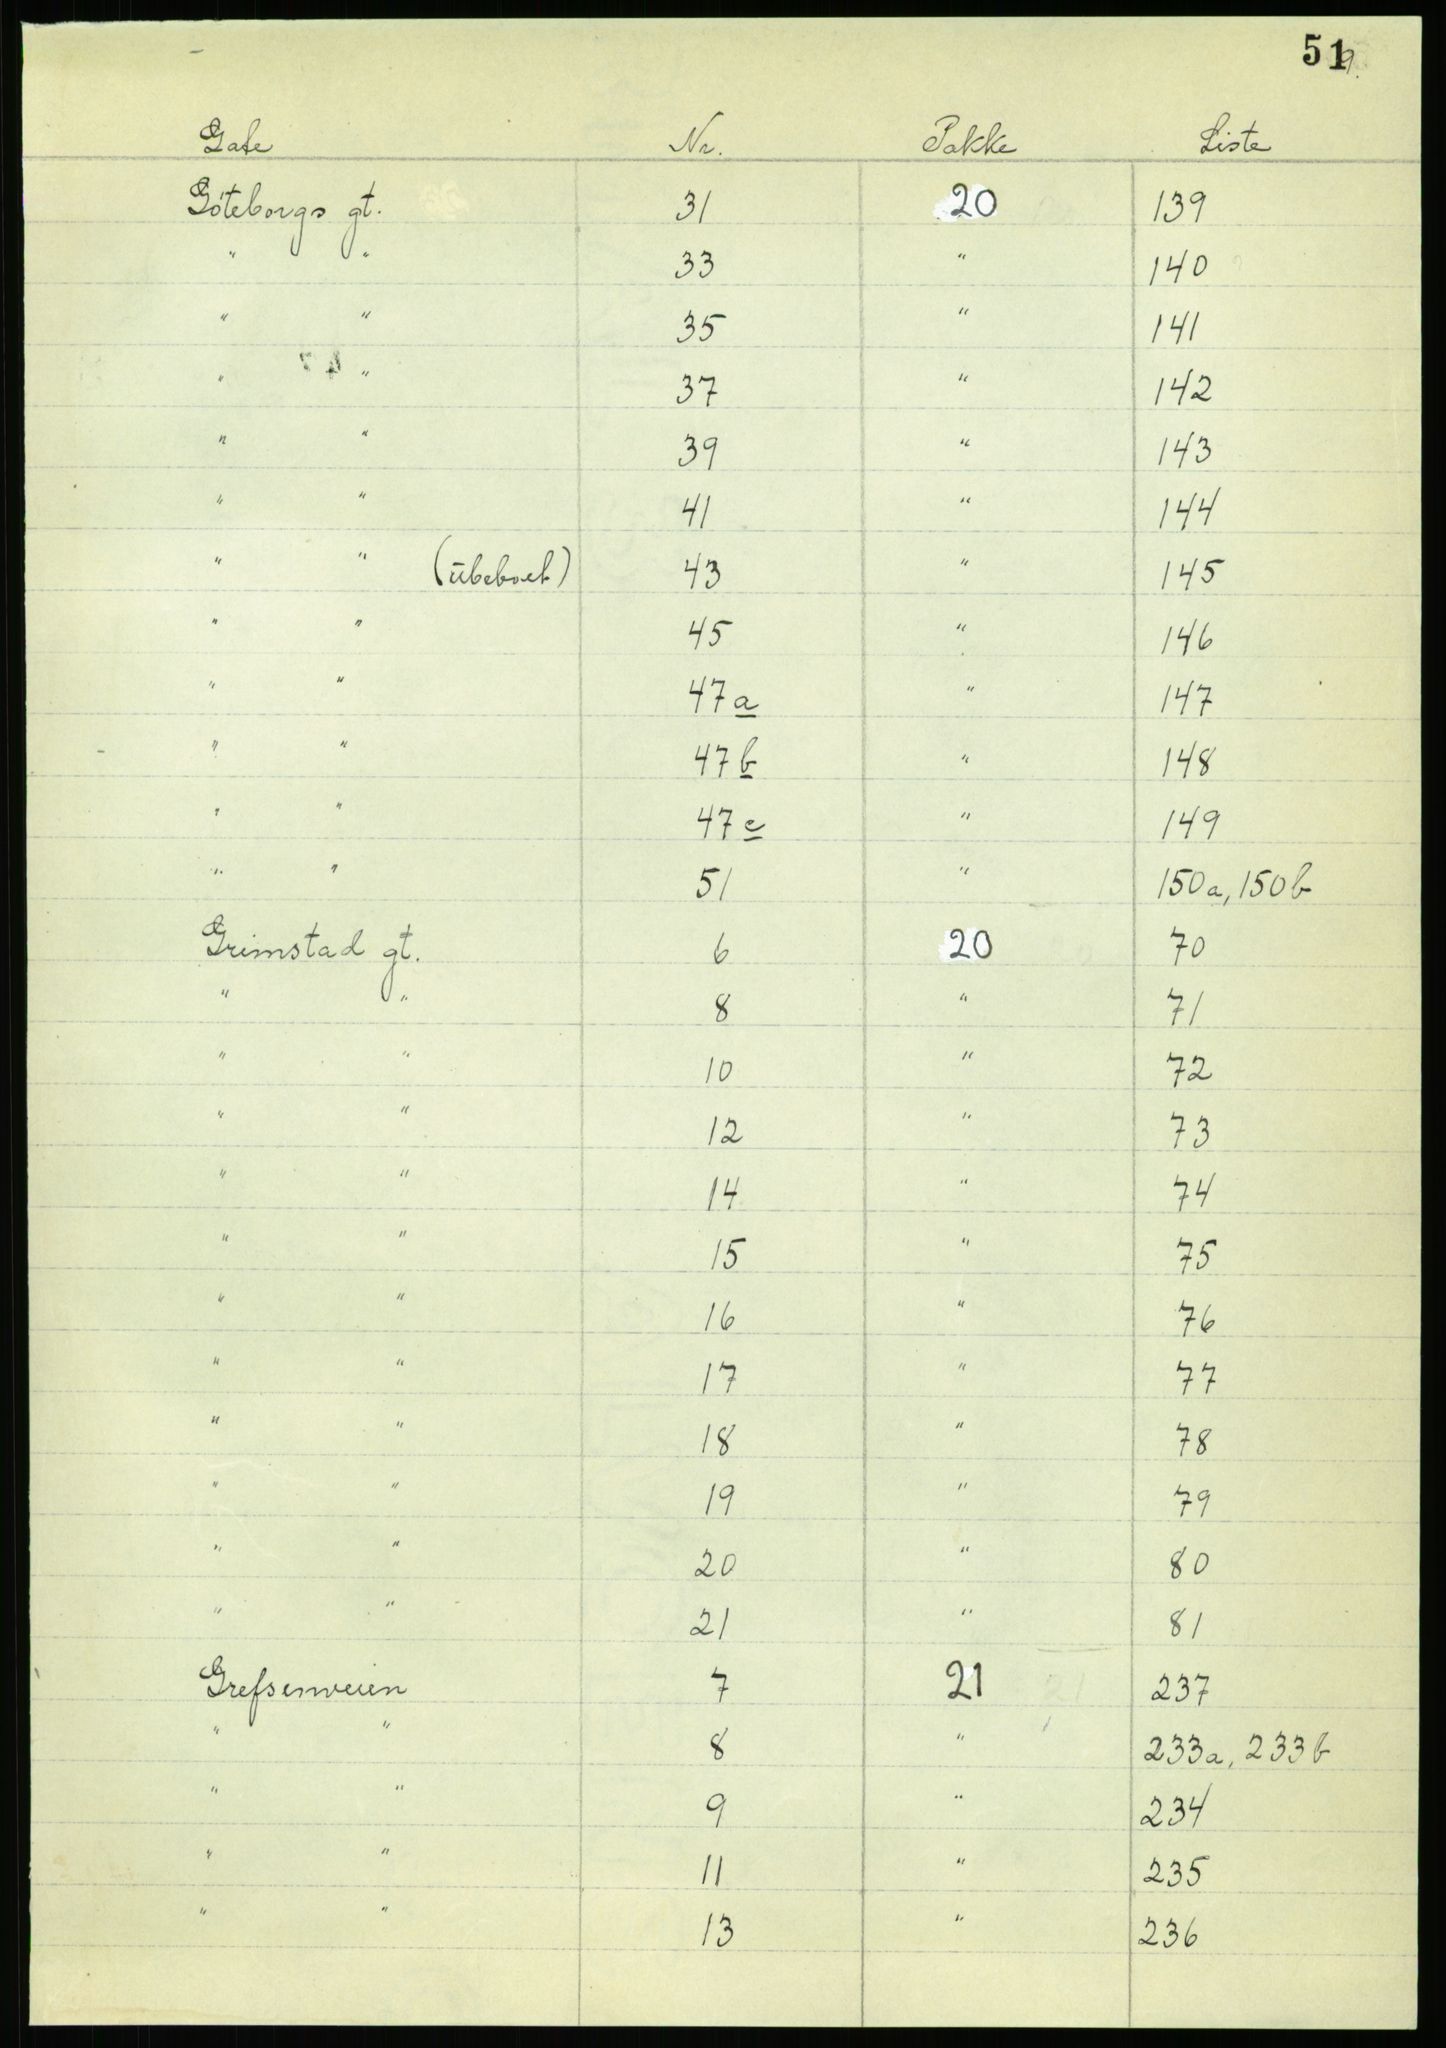 51
Gate Nr. Pakke Liste
Göteborgs gt. 31 20 139
" " 33 " 140
" " 35 " 141
" " 37 " 142
" " 39 " 143
" " 41 " 144
" " (ubeboet) 43 " 145
" " 45 " 146
" " 47a " 147
" " 47b " 148
" " 47c " 149
" " 51 " 150a, 150b
Grimstad gt. 6 20 70
" " 8 " 71
" " 10 " 72
" " 12 " 73
" " 14 " 74
" " 15 " 75
" " 16 " 76
" " 17 " 77
" " 18 " 78
" " 19 " 79
" " 20 " 80
" " 21 " 81
Grefsenveien 7 21 237
" " 8 " 233a, 233b
" " 9 " 234
" " 11 " 235
" " 13 " 236